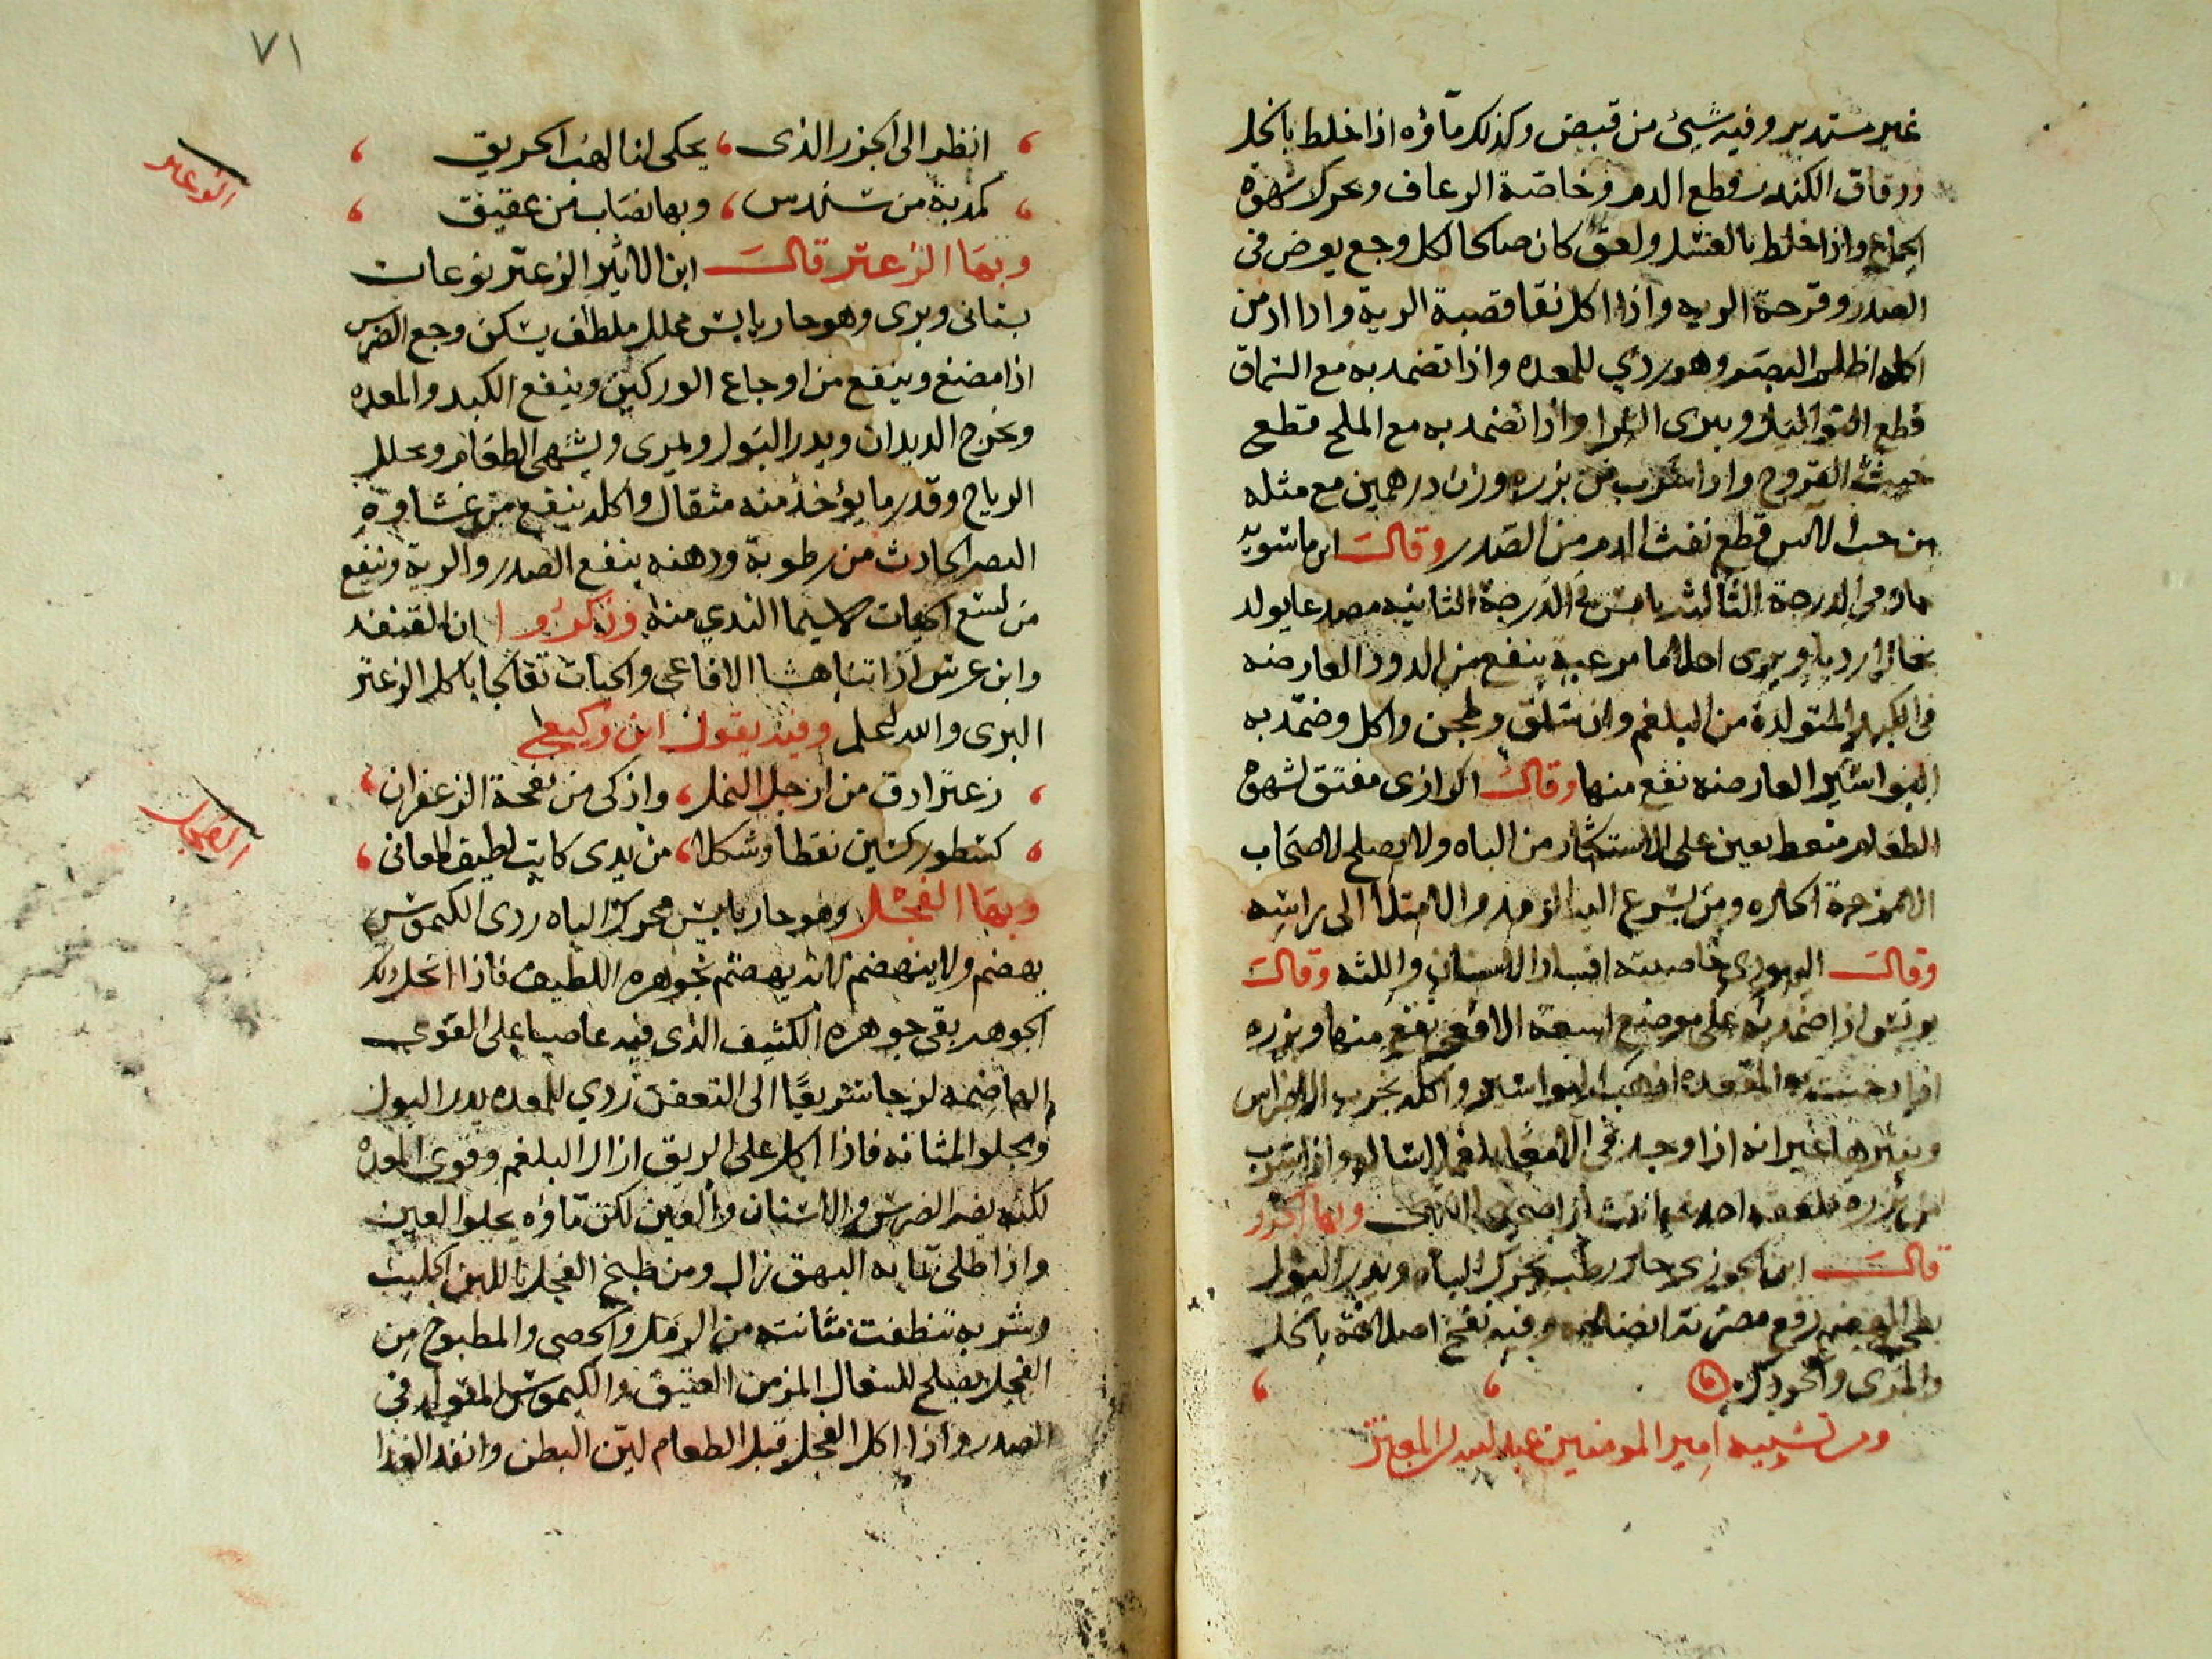 غير مستدير وفيه شيئ من قبض وكذلك ماؤه اذا خلط بالخل
ودقاق الكندر قطع الدم وخاصة الرعاف ويحرك شهوة
الجماع واذا خلط بالعسل ولعق كان صالحا لكل وجع يعرض في
الصدر وقرحة الريه واذا اكل نقا قصبة الرية واذا ادمن
اكله اظلم البصر وهو ردي للمعده واذا تضمد به مع السماق
قطع واذا تضمد به مع الملح قطع
خبث القروح واذا شرب من بزره وزن درهمين مع مثله
من حب الاس قطع نفث الدم من الصدر وقال ابن ماسويه
حار في الدرجة الثالثه يابس في الدرجة الثانيه مصدع يولد
ينفع من الدود العارضه
في المتولدة من البلغم وان سلق وطجن واكل وضمد به
البواسير العارضه نفع منها وقال الرازى مفتق لشهوة
الطعام منعظ يعين على الاستكثار من الباه ولا يصلح لاصحاب
الامزجة الحاره ومن يسرع اليه الرمد والامتلا الى راسه
وقال خاصيته افساد الاسنان واللثه وقال
يونس اذا ضمد به على موضع لسعة الافعى نفع منها وبزره
اذا دخنت به المقعده اذهب البواسير واكله يخرب الاضراس
وغيرها غير انه اذا وجد في
من بزره وبها الجزر
قال ابن الجوزي حار رطب يحرك الباه ويدر البول
بطي الهضم رفع مضرته انضاجه وفيه نفخ اصلاحه بالخل
والمرى والخردل
ومن تشبيه امير المومنين عبد الله بن المعتز
٧١
انظر الى الجزر الذى يحكى لنا لهب الحريق
كمدبة من سندس وبها نصاب من عقيق
الزعتر
وبها الزعتر قال ابن الاثير الزعتر نوعان
بستانى وبرى وهو حار يابس محلل ملطف يسكن وجع الضرس
اذا مضغ وينفع من اوجاع الوركين وينفع الكبد والمعده
ويخرج الديدان ويدر البول ويمرى ويشهى الطعام ويحلل
الرياح وقدر ما يؤخذ منه مثقال واكله ينفع من غشاوة
البصر الحادث من رطوبة ودهنه ينفع الصدر والرية وينفع
من لسع الحيات لا سيما الندي منه وذكروا ان القنفد
وابن عرس اذا تناهشا الافاعى والحيات تعالجا باكل الزعتر
البرى والله اعلم وفيه يقول ابن وكيع
زعتر ادق من ارجل النمل واذكى من نفحة الزعفران
كسطور كسين نقطا وشكلا من يدى كاتب لطيف المعانى
الفجل
وبها الفجل وهو حار يابس محرك الباه ردى الكيموس
يهضم ولا ينهضم لانه يهضم بجوهره اللطيف فاذا انحل ذلك
الجوهر بقى جوهره الكثيف الذى فيه عاصيا على القوى
الهاضمه لزجا سريعا الى التعفن ردي للمعده يدر البول
ويجلو المثانه فاذا اكل على الريق ازال البلغم وقوى المعده
لكنه يضر الضرس والاسنان والعين لكن ماؤه يجلو العين
واذا طلى بمائه البهق زال ومن طبخ الفجل باللبن الحليب
وشربه تنظفت مثانته من الرمل والحصى والمطبوخ من
الفجل يصلح للسعال المزمن العتيق والكيموس المتولد في
الصدر واذا اكل الفجل قبل الطعام لين البطن وانفد الغذا